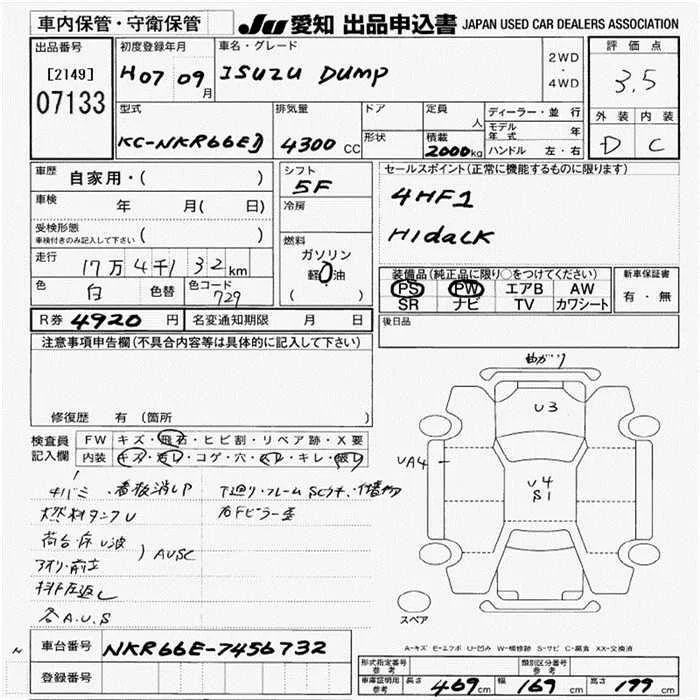 車内保管・守衛保管
JU 愛知 出品申込書 JAPAN USED CAR DEALERS ASSOCIATION
出品番号
[2149]
07133
初度登録年月
H07 09月
車名・グレード
ISUZU DUMP
2WD
・
4WD
評価点
3.5
外装 内装
D C
型式
KC-NKR66ED
排気量
4300 CC
ドア
形状
定員
人
積載
2000kg
ディーラー・並行
モデル年式 年
ハンドル 左・右
車歴
自家用・( )
車検
年 月( 日)
受検形態
車検付きのみ記入して下さい ( )
走行
17万4千132km
色
白
色替
色コード
729
シフト
5F
冷房
燃料
ガソリン
軽油
( )
セールスポイント(正常に機能するものに限ります)
4HF1
HIdaCK
装備品(純正品に限り○をつけてください)
PS PW エアB AW
SR ナビ TV カワシート
新車保証書
有・無
後日品
R券 4920 円
名変通知期限 月 日
注意事項申告欄(不具合内容等は具体的に記入して下さい)
修復歴 有(箇所 )
検査員
記入欄
FW キズ・飛石・ヒビ割・リペア跡・X要
内装 キズ・汚レ・コゲ・穴・スレ・キレ・破レ
キバミ、看板消しP
燃料タンクU
荷台・床U波
) AUSC
各A.U.S
曲がり
U3
UA4
U4
S1
スペア
A-キズ E-エクボ U-凹み W-補修跡 S-サビ C-腐食 XX-交換済
車台番号 NKR66E-7456732
登録番号
形式指定番号
参考
類別区分番号
参考
車庫証明用
参考
長さ 469cm 幅 169cm 高さ 199cm